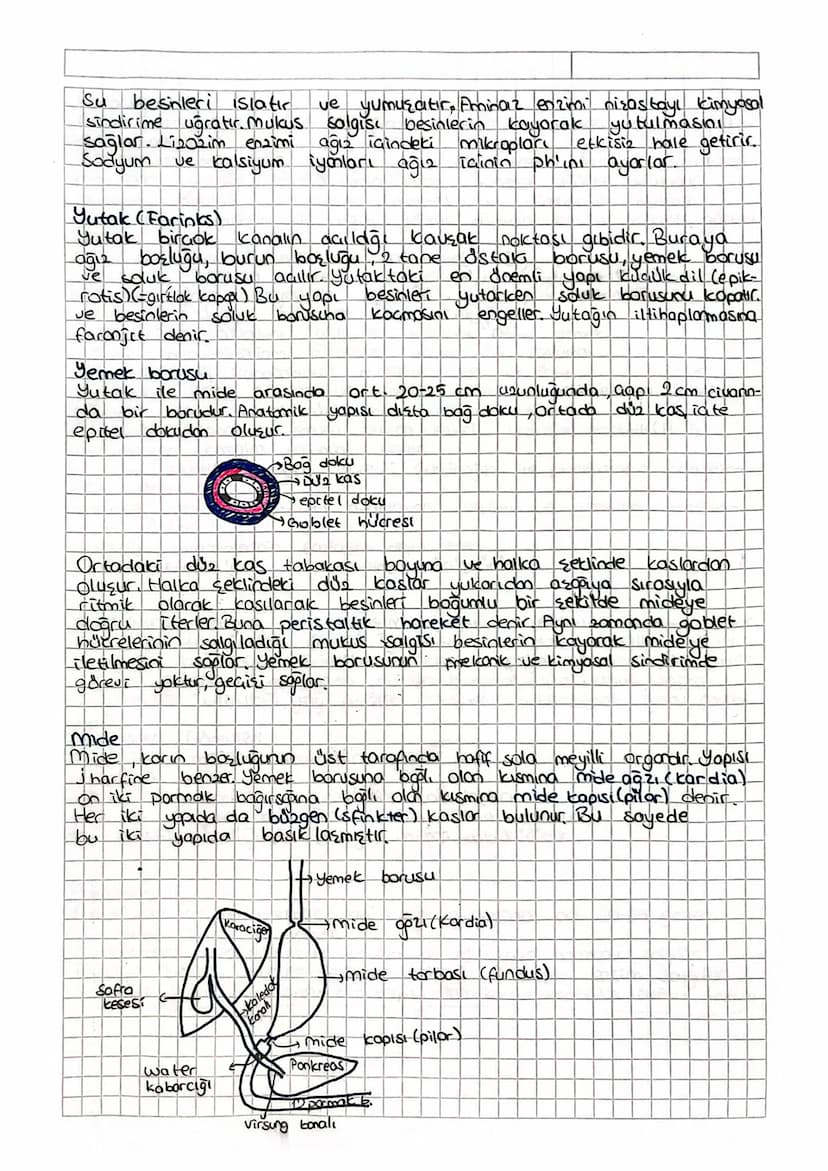 Su besinleri ıslatır ve yumuşatır, Aminaz enzimi nişastayı kimyasal
sindirime uğratır. Mukus salgısı besinlerin kayarak yutulmasını
sağlar. Lizozim enzimi ağız içindeki mikropları etkisiz hale getirir.
Sodyum ve kalsiyum iyonları ağız içinin ph'ını ayarlar.
Yutak (Farinks)
Yutak birçok kanalın açıldığı kavşak noktası gibidir. Buraya
ağız boşluğu, burun boşluğu, 2 tane östaki borusu, yemek borusu
ve soluk borusu açılır. Yutaktaki en önemli yapı küçük dil (epik-
rotis) (gırtlak kapağı) Bu yapı besinleri yutarken soluk borusunu kapatır.
ve besinlerin soluk borusuna kaçmasını engeller. Yutağın iltihaplanmasına
faranjit denir.
Yemek borusu
Yutak ile mide arasında ort. 20-25 cm uzunluğunda, çapı 2 cm civarın-
da bir borudur. Anatomik yapısı dışta bağ doku, ortada düz kas, içte
epitel dokudan oluşur.
Bağ doku
Düz kas
epitel doku
Goblet hücresi
Ortadaki düz kas tabakası boyuna ve halka şeklinde kaslardan
oluşur. Halka şeklindeki düz kaslar yukarıdan aşağıya sırasıyla
ritmik olarak kasılarak besinleri boğumlu bir şekilde mideye
doğru iterler. Buna peristaltik hareket denir. Aynı zamanda goblet
hücrelerinin salgıladığı mukus salgısı besinlerin kayarak mideye
iletilmesini sağlar. Yemek borusunun mekanik ve kimyasal sindirimde
görevi yoktur, geçişi sağlar.
Mide
Mide, karın boşluğunun üst tarafında hafif sola meyilli organdır. Yapısı
J harfine benzer. Yemek borusuna bağlı olan kısmına mide ağzı (kardia)
on iki parmak bağırsağına bağlı olan kısmına mide kapısı (pilor) denir.
Her iki yapıda da büzgen (sfinkter) kaslar bulunur. Bu sayede
bu iki yapıda basıklaşmıştır.
yemek borusu
Karaciğer
mide ağzı (Kardia)
mide torbası (fundus)
Safra
kesesi
Koledok
kanalı
mide kapısı (pilor)
Pankreas
water
kabarcığı
12 parmak b.
Virsung kanalı